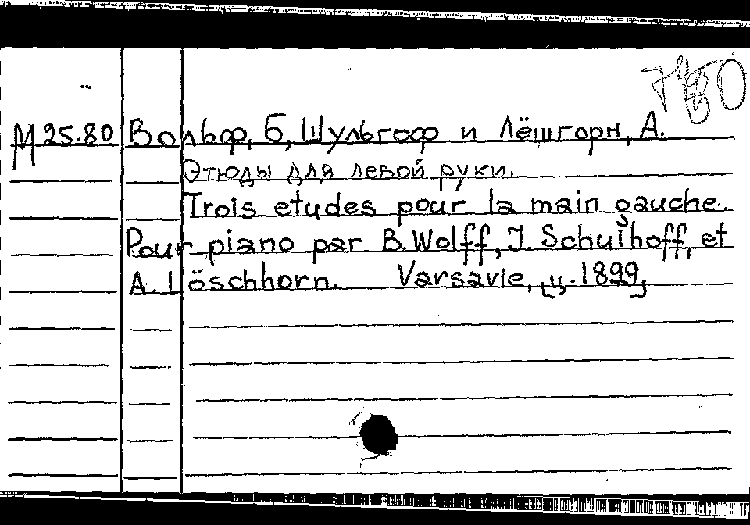 М 25.80 Вольф, Б, Шульгоф и Лёшгорн, А.
Этюды для левой руки.
Trois etudes pour la main gauche.
Pour piano par B. Wolff, J. Schulhoff, et
A. Löschhorn. Varsavie, [ц. 1899]